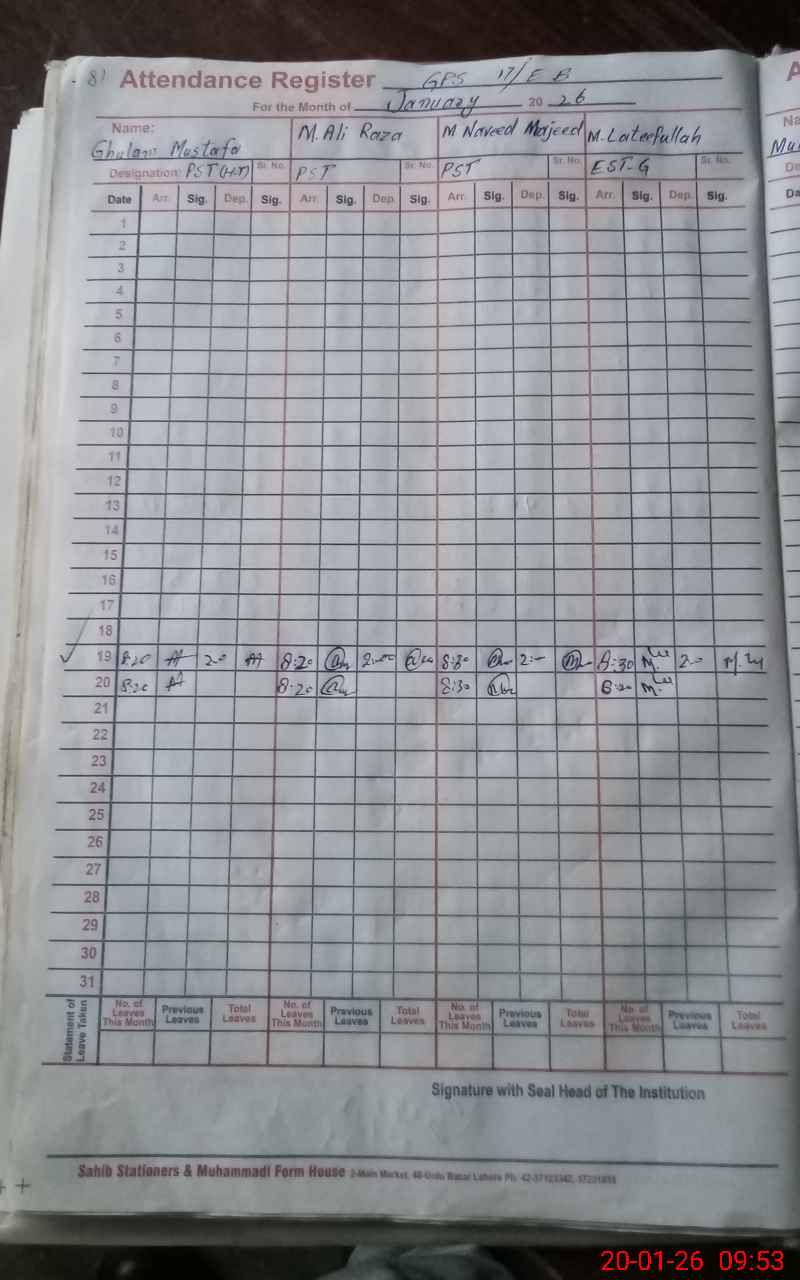 81 Attendance Register GPS 17/EB
For the Month of January 2026
Name: Ghulam Mustafa M. Ali Raza M Naveed Majeed M. Lateefullah
Designation: PST (H.T) Sr. No. PST Sr. No. PST Sr. No. EST-G Sr. No.
Date Arr. Sig. Dep. Sig. Arr. Sig. Dep. Sig. Arr. Sig. Dep. Sig. Arr. Sig. Dep. Sig.
1
2
3
4
5
6
7
8
9
10
11
12
13
14
15
16
17
18
19 8:20 8:20 8:30 8:30
20 8:20 8:20 8:30
21
22
23
24
25
26
27
28
29
30
31
Statement of Leave Taken
No. of Leaves This Month Previous Leaves Total Leaves No. of Leaves This Month Previous Leaves Total Leaves No. of Leaves This Month Previous Leaves Total Leaves No. of Leaves This Month Previous Leaves Total Leaves
Signature with Seal Head of The Institution
Sahib Stationers & Muhammadi Form House 2-Main Market, 40-Urdu Bazar Lahore Ph:
20-01-26 09:53